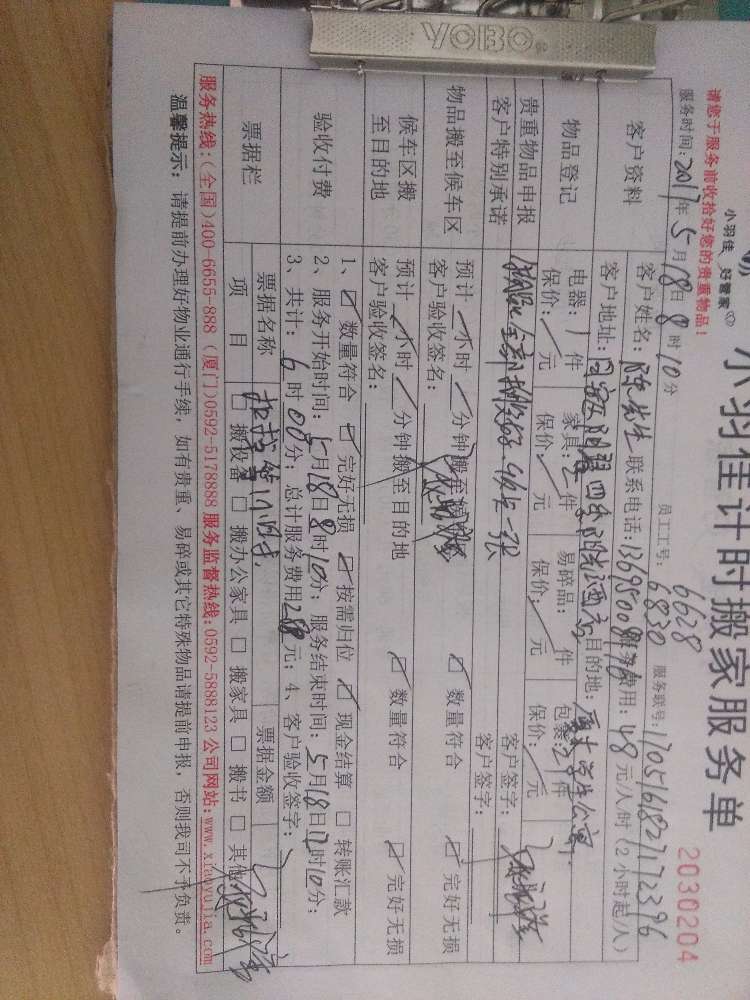 YOBO
小羽佳 好管家
小羽佳计时搬家服务单
2030204
请您于服务前收拾好您的贵重物品！
员工工号：6628 6830
服务时间：2017年5月18日8时10分
服务联号：170516182717 2396
客户资料
客户姓名：陈先生 联系电话：13695008176 服务费用：48元/人时（2小时起/人）
客户地址：四季阳光酒店 目的地：厦大学生公寓
物品登记
电器：1件 家具：2件 易碎品：/件 包裹：21件
保价：/元 保价：/元 保价：/元 保价：/元
贵重物品申报
客户特别承诺
客户签字：
物品搬至候车区
预计/小时/分钟搬至
数量符合 完好无损
客户验收签名：
客户签字：
候车区搬
至目的地
预计/小时/分钟搬至目的地
数量符合 完好无损
客户验收签名：
验收付费
1、☑数量符合 ☑完好无损 ☑按需归位 ☑现金结算 □转账汇款
2、服务开始时间：5月18日8时10分；服务结束时间：5月18日12时10分；
3、共计：6时08分；总计服务费用288元；4、客户验收签字：
票据栏
票据名称
票据金额
项目 □搬设备 □搬办公家具 □搬家具 □搬书 □其他
服务热线：（全国）400-6655-888（厦门）0592-5178888 服务监督热线：0592-5888123 公司网站：www.xiaoyujia.com
温馨提示：请提前办理好物业通行手续，如有贵重、易碎或其它特殊物品请提前申报，否则我司不予负责。